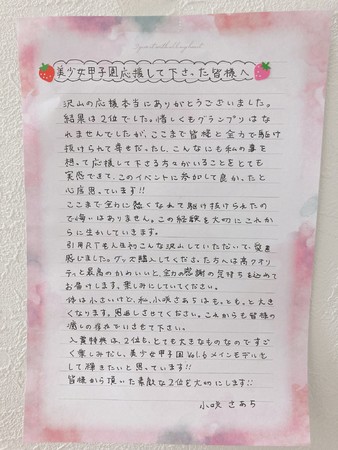 美少女甲子園応援して下さった皆様へ
沢山の応援本当にありがとうございました。
結果は2位でした。惜しくもグランプリはな
れませんでしたが、ここまで皆様と全力で駆け
抜けられて幸せだったし、こんなにも私の事を
想って応援して下さる方々がいることをとても
実感できて、このイベントに参加して良かったと
心底思っています!!
ここまで全力に熱くなれて駆け抜けられたの
で悔いはありません。この経験を大切にこれか
らに生かしていきます。
引用RTも人生初こんな沢山していただいて、愛を
感じました。グッズ購入してくださった方へは高クオリ
ティと最高のかわいいと、全力の感謝の気持ちを込めて
お届けします。楽しみにしていてください。
体は小さいけど、私、小咲さあちはもっともっと大き
くなります。恩返しさせてください。これからも皆様の
癒しの存在でいさせて下さい。
入賞特典は、2位も、とても大きなものなのですご
く楽しみだし、美少女甲子園Vol.6メインモデルとし
て輝きたいと思っています!!
皆様から頂いた素敵な2位を大切にします!!
小咲 さあち